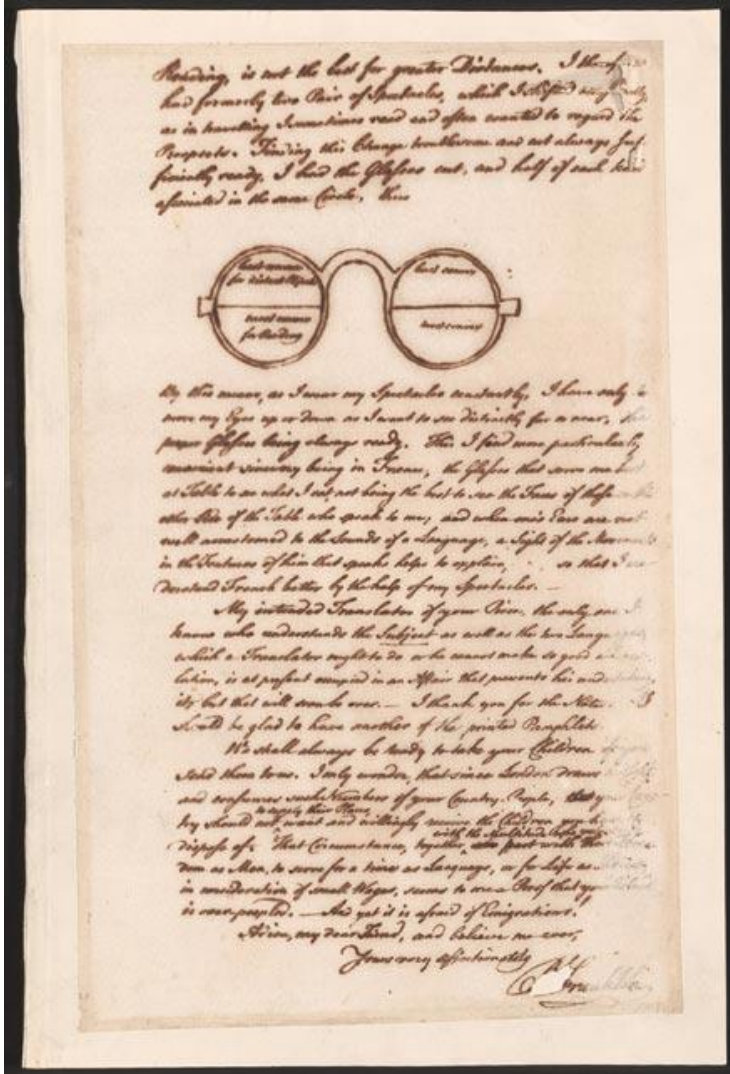 Reading, is not the best for greater Distances. I therefore
had formerly two Pair of Spectacles, which I shifted occasionally,
as in travelling I sometimes read and often wanted to regard the
Prospects. Finding this Change troublesome and not always suf-
ficiently ready, I had the Glasses cut, and half of each kind
associated in the same Circle, thus
least convex
for distant Objects
most convex
for Reading
least convex
most convex
By this means, as I wear my Spectacles constantly, I have only to
move my Eyes up or down as I want to see distinctly far or near, the
proper Glasses being always ready. This I find more particularly
convenient since my being in France, the Glasses that serve me best
at Table to see what I eat, not being the best to see the Faces of those on the
other Side of the Table who speak to me; and when one's Ears are not
well accustomed to the Sounds of a Language, a Sight of the Movements
in the Features of him that speaks helps to explain, so that I un-
derstand French better by the help of my Spectacles. —
My intended Translator of your Piece, the only one I
know who understands the Subject as well as the two Languages,
which a Translator ought to do or he cannot make so good a Trans-
lation, is at present occupied in an Affair that prevents his undertaking
it; but that will soon be over. — I thank you for the Notes. I
should be glad to have another of the printed Pamphlets.
We shall always be ready to take your Children if you
send them to us. I only wonder, that since London draws
and consumes such Numbers of your Country People, that your Coun-
to supply their Places
try should not want and willingly receive the Children you have to
with the Multitude who
dispose of. That Circumstance, together part with their Free-
dom as Men, to serve for a time as Lacqueys, or for Life as
in consideration of small Wages, seems to me a Proof that your Island
is over-peopled. — And yet it is afraid of Emigrations!
Adieu, my dear Friend, and believe me ever,
Yours very affectionately
B Franklin